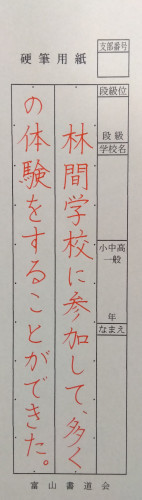 硬筆用紙
支部番号
段級位
段級
学校名
小中高
一般
年
なまえ
林間学校に参加して、多く
の体験をすることができた。
富山書道会